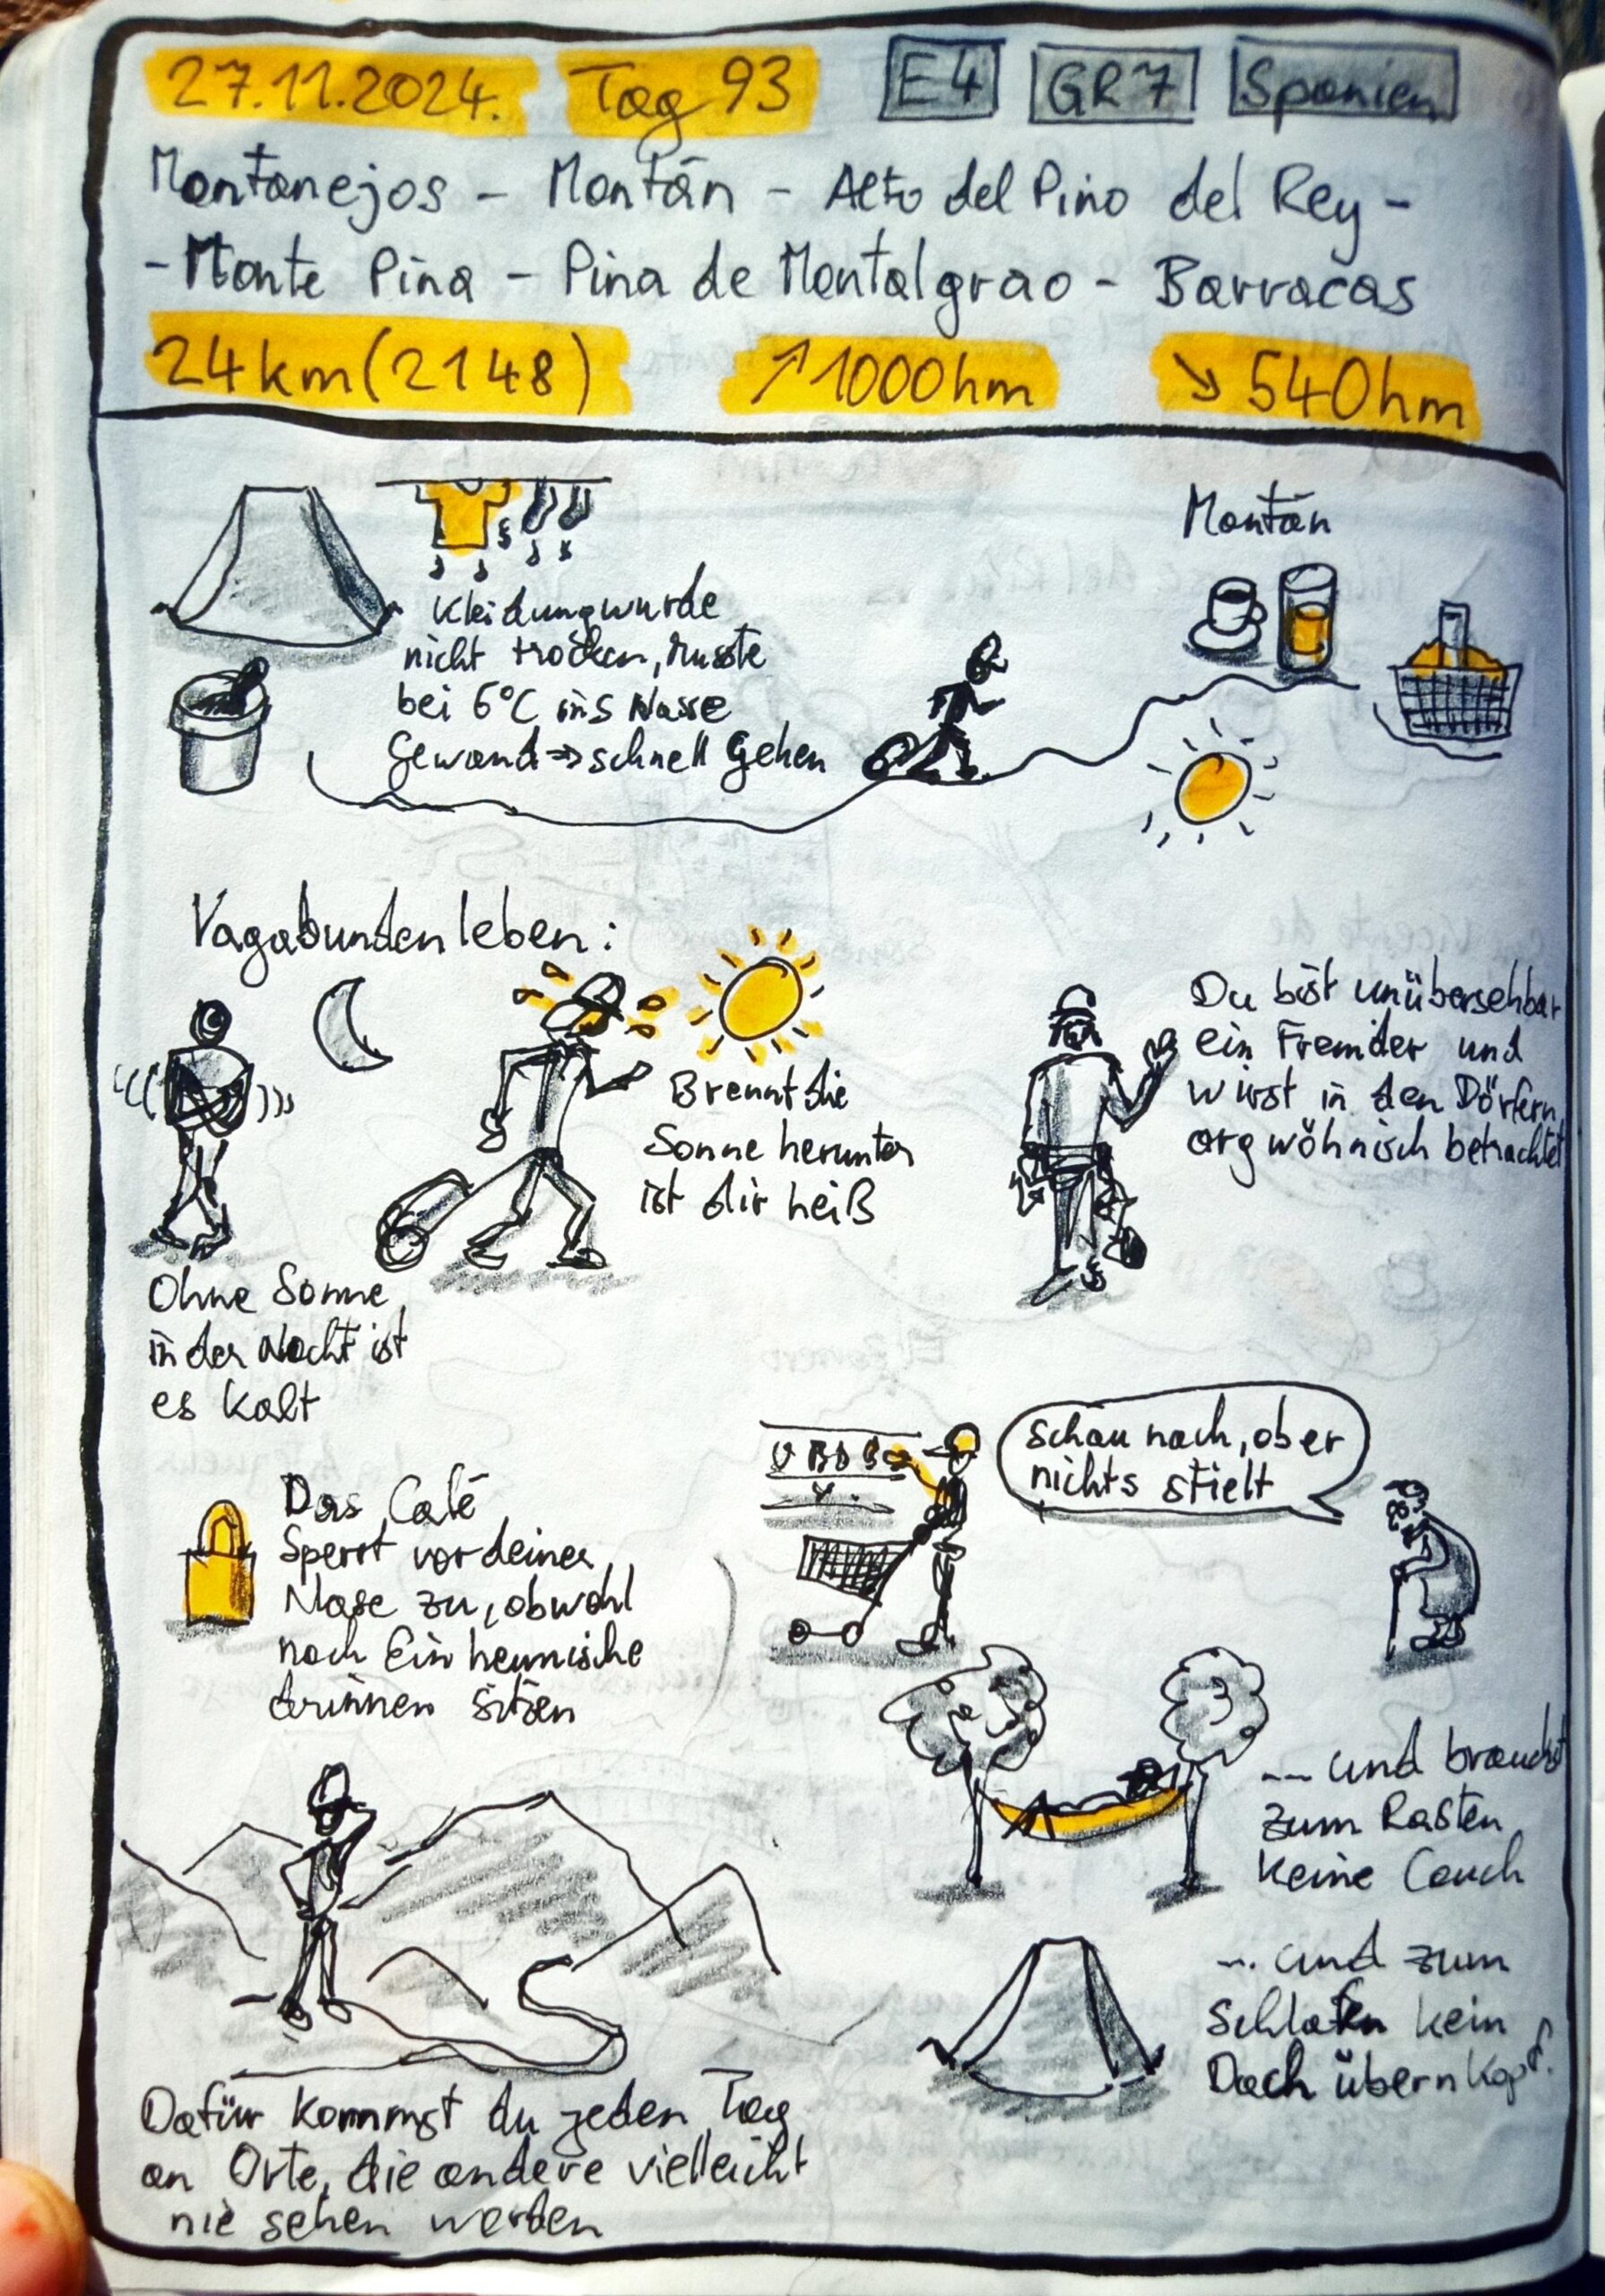 27.11.2024. Tag 93 E4 GR7 Spanien
Montanejos - Montán - Alto del Pino del Rey -
- Monte Pina - Pina de Montalgrao - Barracas
24km (2148) ↗1000hm ↘540hm
Kleidung wurde
nicht trocken, musste
bei 6°C ins Nasse
Gewand ⇒ schnell gehen
Montán
Vagabundenleben:
Ohne Sonne,
in der Nacht ist
es kalt
Brennt die
Sonne herunter
ist dir heiß
Du bist unübersehbar
ein Fremder und
wirst in den Dörfern
argwöhnisch betrachtet
Das Café
Sperrt vor deiner
Nase zu, obwohl
noch Einheimische
drinnen sitzen
Schau nach, ober
nichts stielt
... und brauchst
zum Rasten
keine Couch
... und zum
Schlafen kein
Dach übern Kopf.
Dafür kommst du jeden Tag
an Orte, die andere vielleicht
nie sehen werden